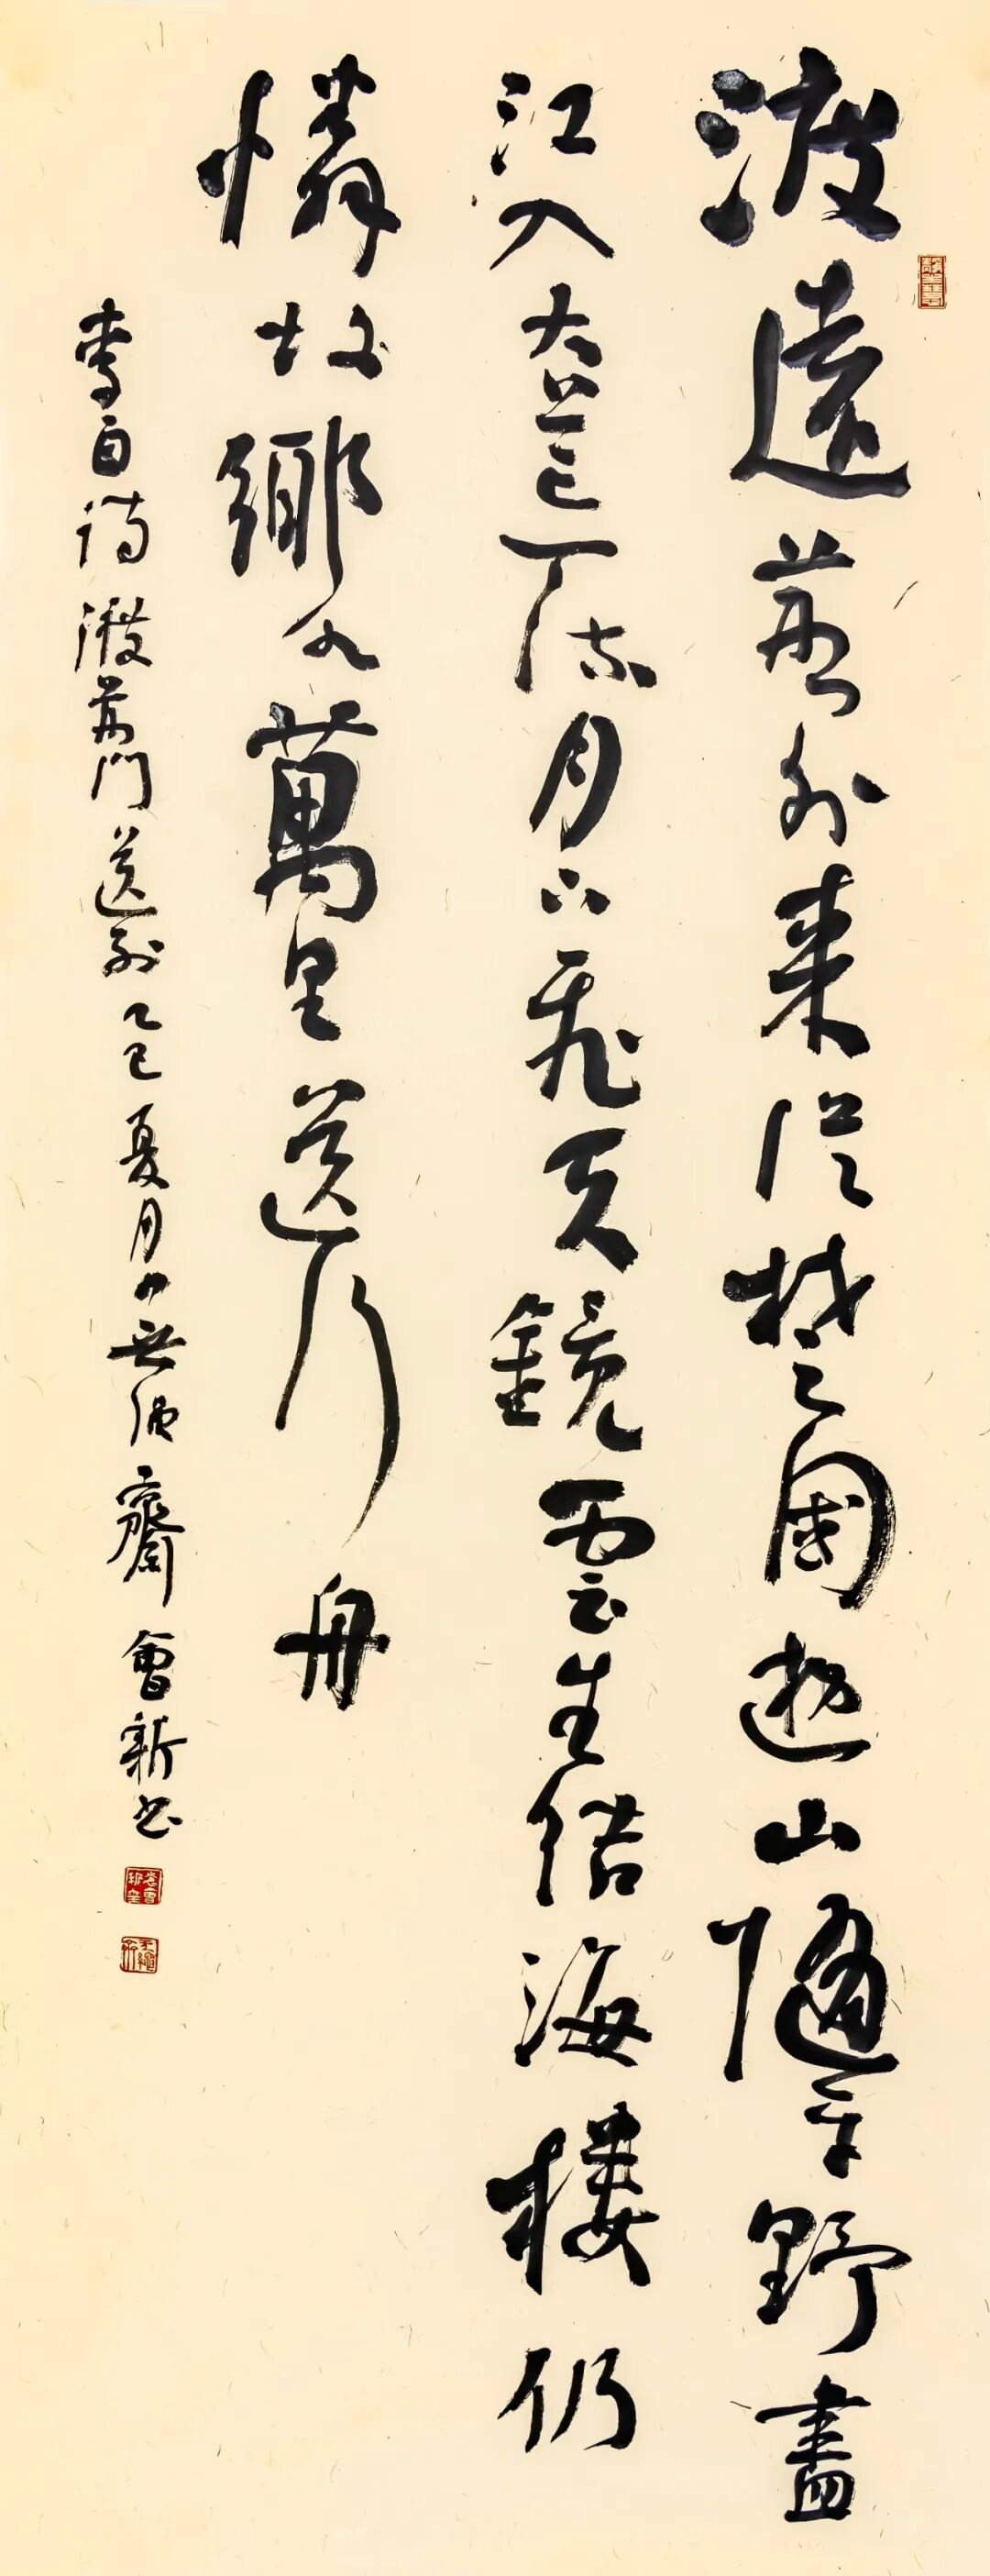 渡遠荊門外來從楚國遊山隨平野盡
江入大荒流月下飛天鏡雲生結海樓仍
憐故鄉水萬里送行舟
李白詩渡荊門送別乙巳夏月無齋會新書